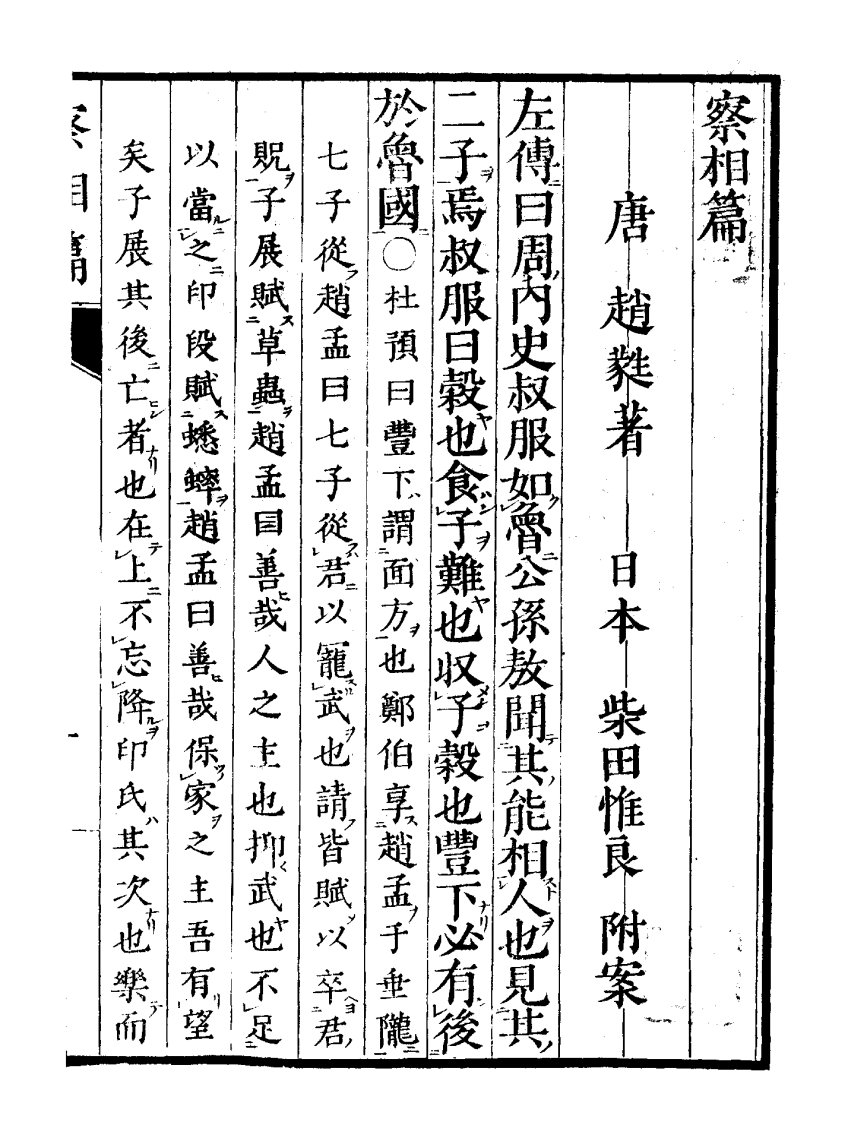 察相篇
唐 趙蕤著 日本 柴田惟良 附案
左傳曰周内史叔服如魯公孫敖聞其能相人也見其
二子焉叔服曰穀也食子難也収子穀也豐下必有後
於魯國○杜預曰豐下謂面方也鄭伯享趙孟于垂隴
七子從趙孟曰七子從君以寵武也請皆賦以卒君
貺子展賦草蟲趙孟曰善哉人之主也抑武也不足
以當之印段賦蟋蟀趙孟曰善哉保家之主吾有望
矣子展其後亡者也在上不忘降印氏其次也樂而
察相篇
一